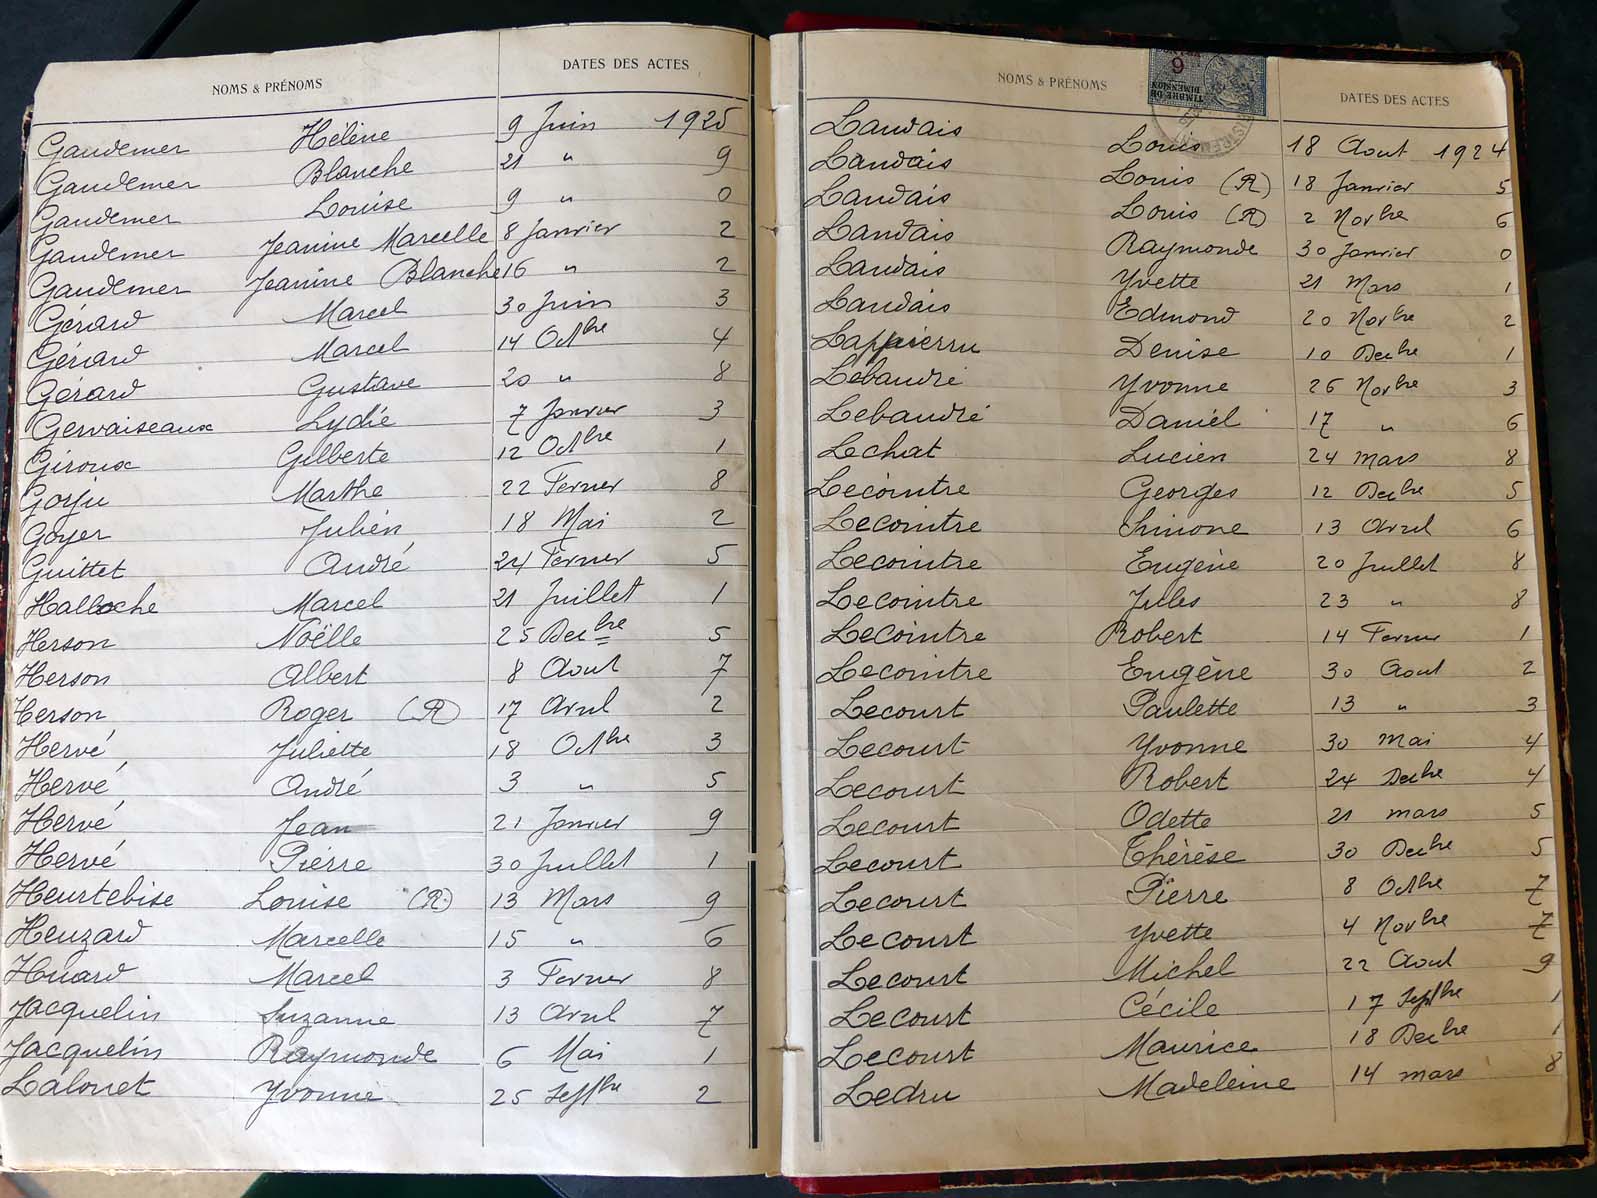 NOMS & PRÉNOMS DATES DES ACTES
Gaudemer Hélène 9 Juin 1925
Gaudemer Blanche 21 " 9
Gaudemer Louise 9 " 0
Gaudemer Jeanine Marcelle 8 Janvier 2
Gaudemer Jeanine Blanche 16 " 2
Gérard Marcel 30 Juin 3
Gérard Marcel 14 Octbre 4
Gérard Gustave 20 " 8
Gervaiseaux Lydie 7 Janvier 3
Giroux Gilberte 12 Octbre 1
Gorju Marthe 22 Fevrier 8
Goyer Julien 18 Mai 2
Guittet André 24 Fevrier 5
Halloche Marcel 21 Juillet 1
Herson Noëlle 25 Decbre 5
Herson Albert 8 Aout 7
Herson Roger (R) 17 Avril 2
Hervé Juliette 18 Octbre 3
Hervé André 3 " 5
Hervé Jean 21 Janvier 9
Hervé Pierre 30 Juillet 1
Heurtebise Louise (R) 13 Mars 9
Heuzard Marcelle 15 " 6
Huard Marcel 3 Fevrier 8
Jacquelin Suzanne 13 Avril 7
Jacquelin Raymonde 6 Mai 1
Lalouet Yvonne 25 Septbre 2
NOMS & PRÉNOMS DATES DES ACTES
TIMBRE DE
DIMENSION
Landais Louis 18 Aout 1924
Landais Louis (R) 18 Janvier 5
Landais Louis (R) 2 Novbre 6
Landais Raymonde 30 Janvier 0
Landais Yvette 21 Mars 1
Landais Edmond 20 Novbre 2
Lappierru Denise 10 Decbre 1
Lebaudré Yvonne 26 Novbre 3
Lebaudré Daniel 17 " 6
Lechat Lucien 24 mars 8
Lecointre Georges 12 Decbre 5
Lecointre Simone 13 Avril 6
Lecointre Eugène 20 Juillet 8
Lecointre Jules 23 " 8
Lecointre Robert 14 Fevrier 1
Lecointre Eugène 30 Aout 2
Lecourt Paulette 13 " 3
Lecourt Yvonne 30 mai 4
Lecourt Robert 24 Decbre 4
Lecourt Odette 21 mars 5
Lecourt Thérèse 30 Decbre 5
Lecourt Pierre 8 Octbre 7
Lecourt Yvette 4 Novbre 7
Lecourt Michel 22 Aout 9
Lecourt Cécile 17 Septbre 1
Lecourt Maurice 18 Decbre 1
Ledru Madeleine 14 mars 8